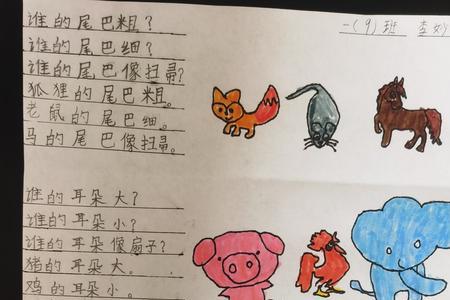 谁的尾巴粗？
一(9)班 李妙
谁的尾巴细？
谁的尾巴像扫帚？
狐狸的尾巴粗。
老鼠的尾巴细。
马的尾巴像扫帚。
谁的耳朵大？
谁的耳朵小？
谁的耳朵像扇子？
猪的耳朵大。
鸡的耳朵小。